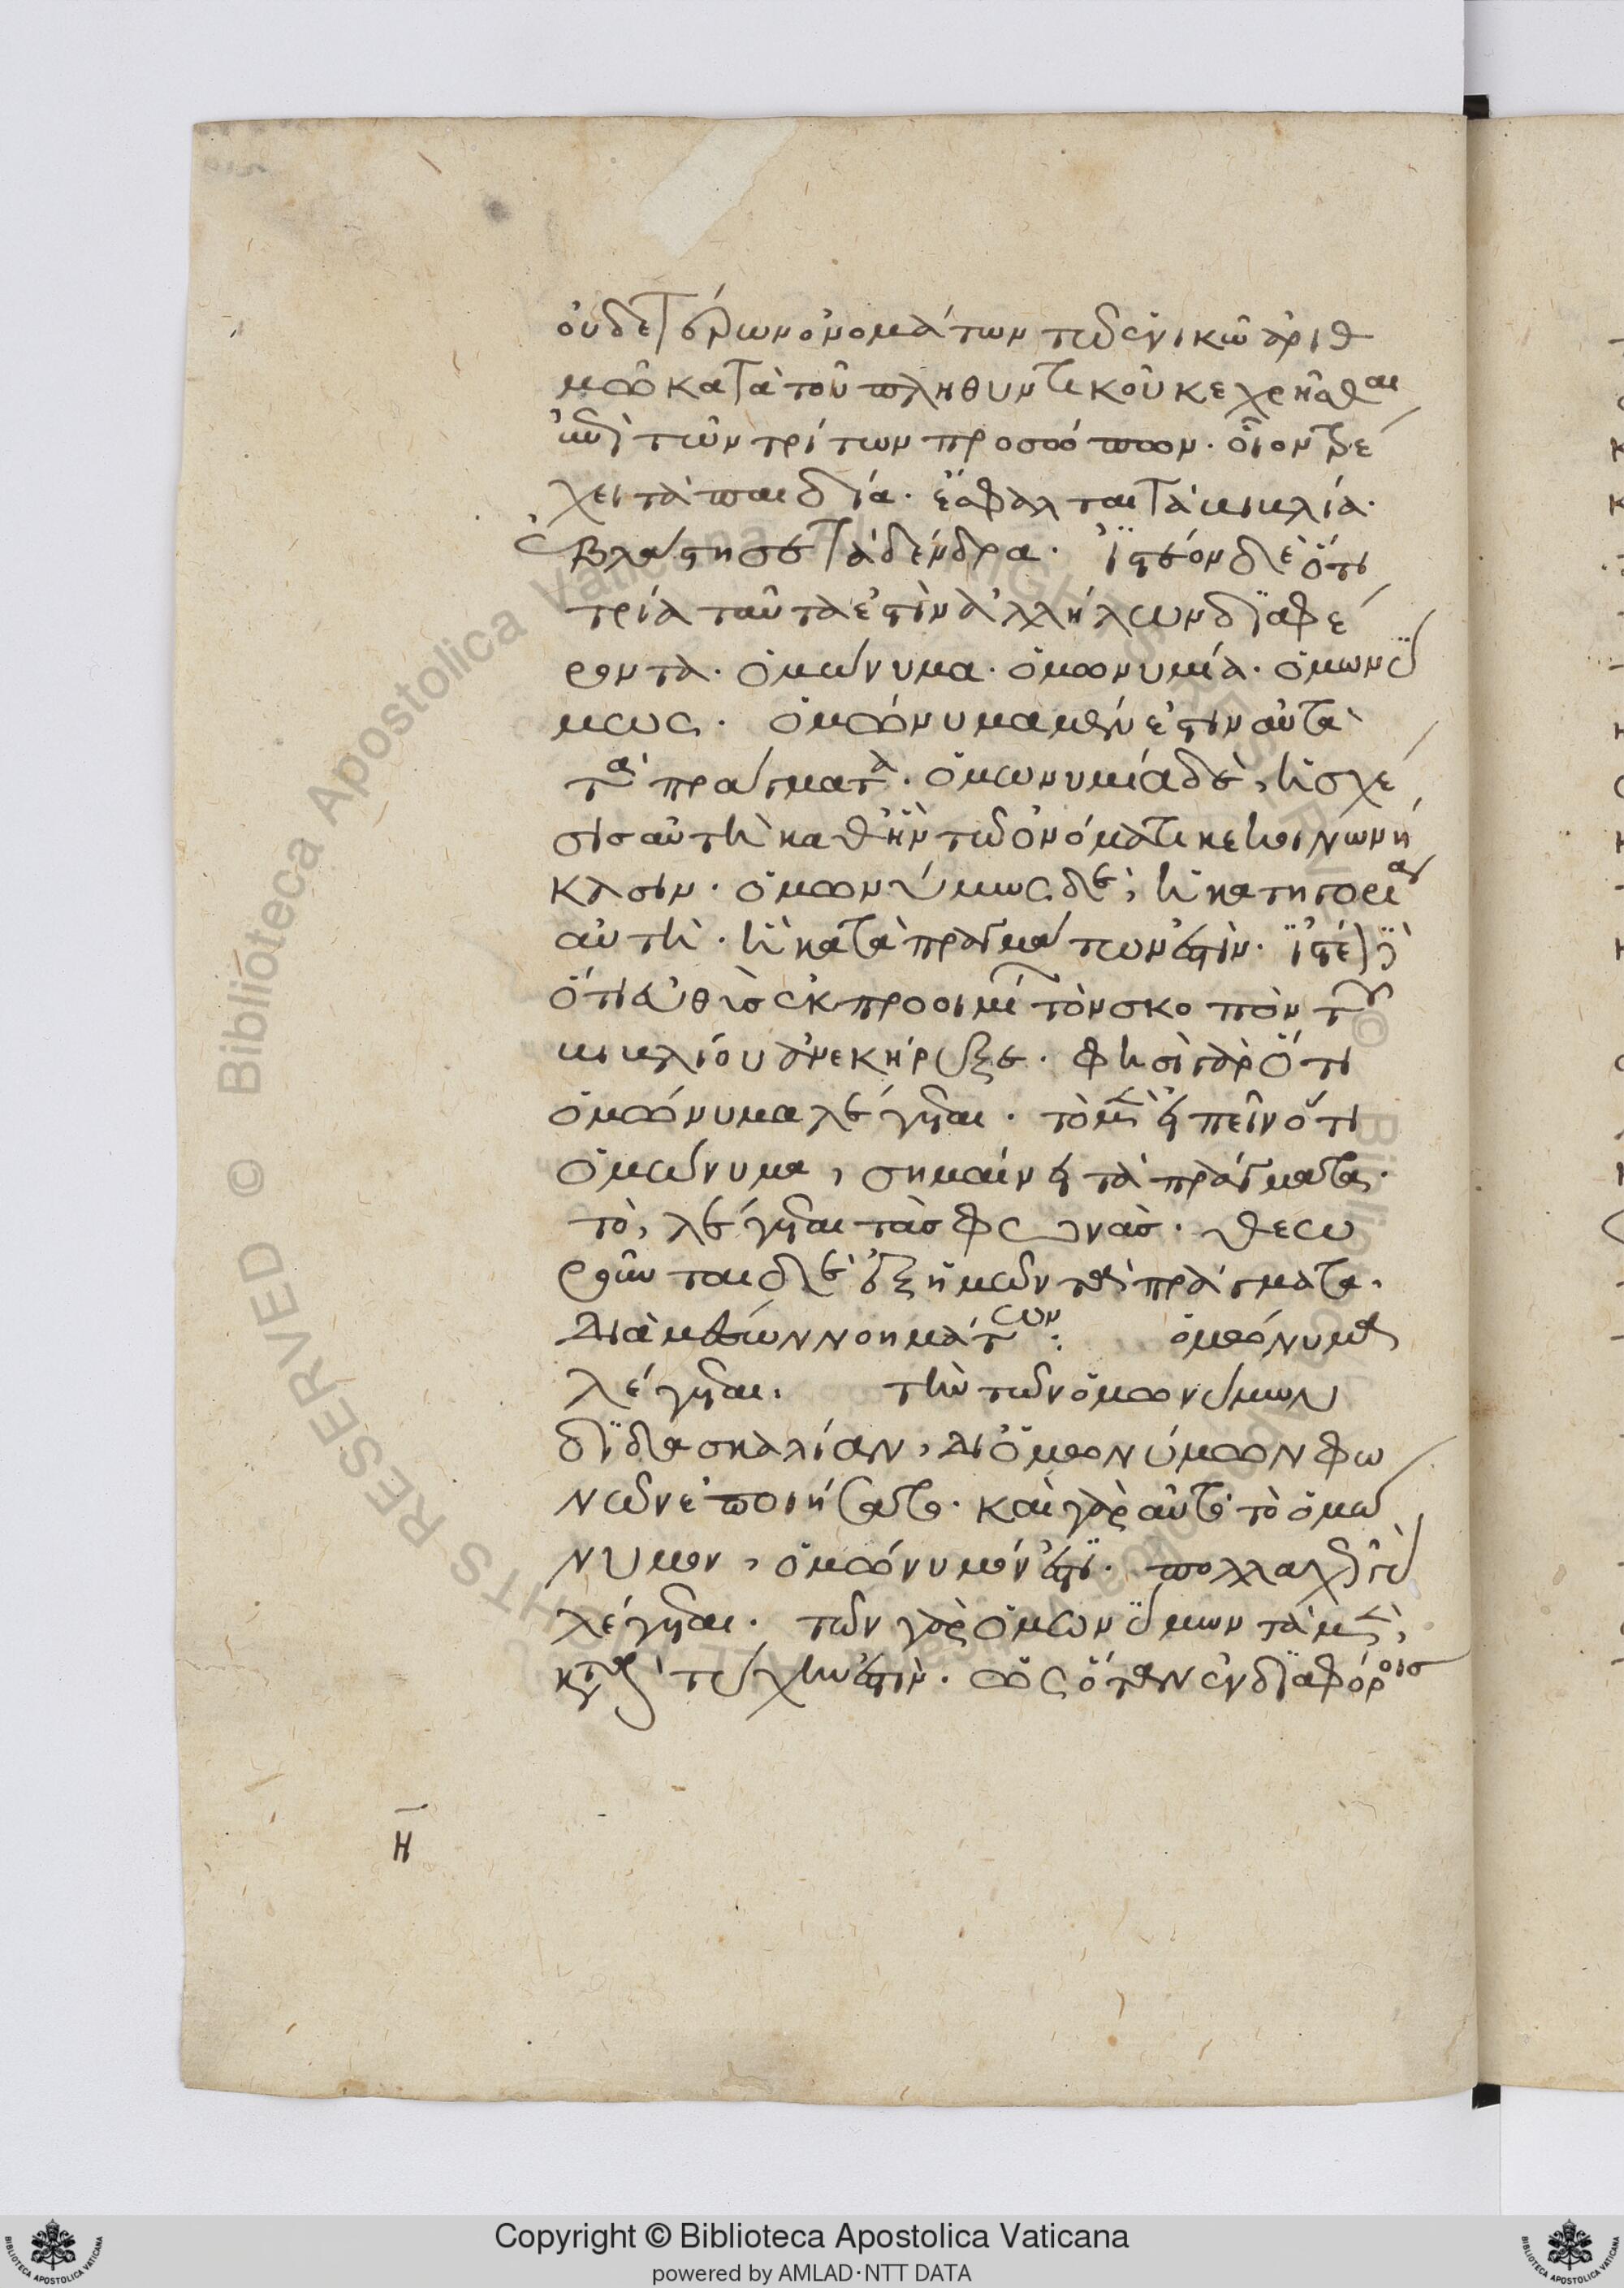 οὐδετέρων ὀνομάτων τῶ ἑνικῶ ἀριθ
μῶ κατὰ τοῦ πληθυντικοῦ κεχρῆσθαι
ἐπὶ τῶν τρίτων προσώπων. οἷον τρέ
χει τὰ παιδία. ἔσφαλται τὰ βιβλία.
ἐβλάστησε τὰ δένδρα. ἰστέον δὲ ὅτι
τρία ταῦτα ἐστὶν ἀλλήλων διαφέ
ροντα. ὁμώνυμα. ὁμωνυμία. ὁμωνύ
μως. ὁμώνυμα μέν ἐστιν αὐτὰ
τὰ πράγματα. ὁμωνυμία δὲ, ἡ σχέ
σις αὐτὴ καθ ἣν τῶ ὀνόματι κεκοινωνή
κασιν. ὁμωνύμως δὲ, ἡ κατηγορία
αὐτὴ. ἡ κατὰ πραγμάτων ἐστίν. ἰστέον
ὅτι εὐθὺς ἐκ προοιμί τὸν σκοπὸν τοῦ
βιβλίου ἀνεκήρυξε. φησὶ γὰρ ὅτι
ὁμώνυμα λέγεται. τὸ μὲν εἰπεῖν ὅτι
ὁμώνυμα, σημαίνει τὰ πράγματα.
τὸ, λέγεται τὰς φωνάς. θεω
ροῦνται δὲ ἐξ ἡμῶν τὰ πράγματα.
διὰ μέσων νοημάτων: ὁμώνυμα
λέγεται. τὴν τῶν ὁμωνύμων
διδασκαλίαν, δι ὁμωνύμων φω
νῶν ἐποιήσατο. καὶ γὰρ αὐτὸ τὸ ὁμώ
νυμον, ὁμώνυμόν ἐστι. πολλαχῶς
λέγεται. τῶν γὰρ ὁμωνύμων τὰ μὲν,
κατὰ τύχην ἐστίν. ὡς ὅταν ἐν διαφόροις
η
Copyright © Biblioteca Apostolica Vaticana
powered by AMLAD·NTT DATA